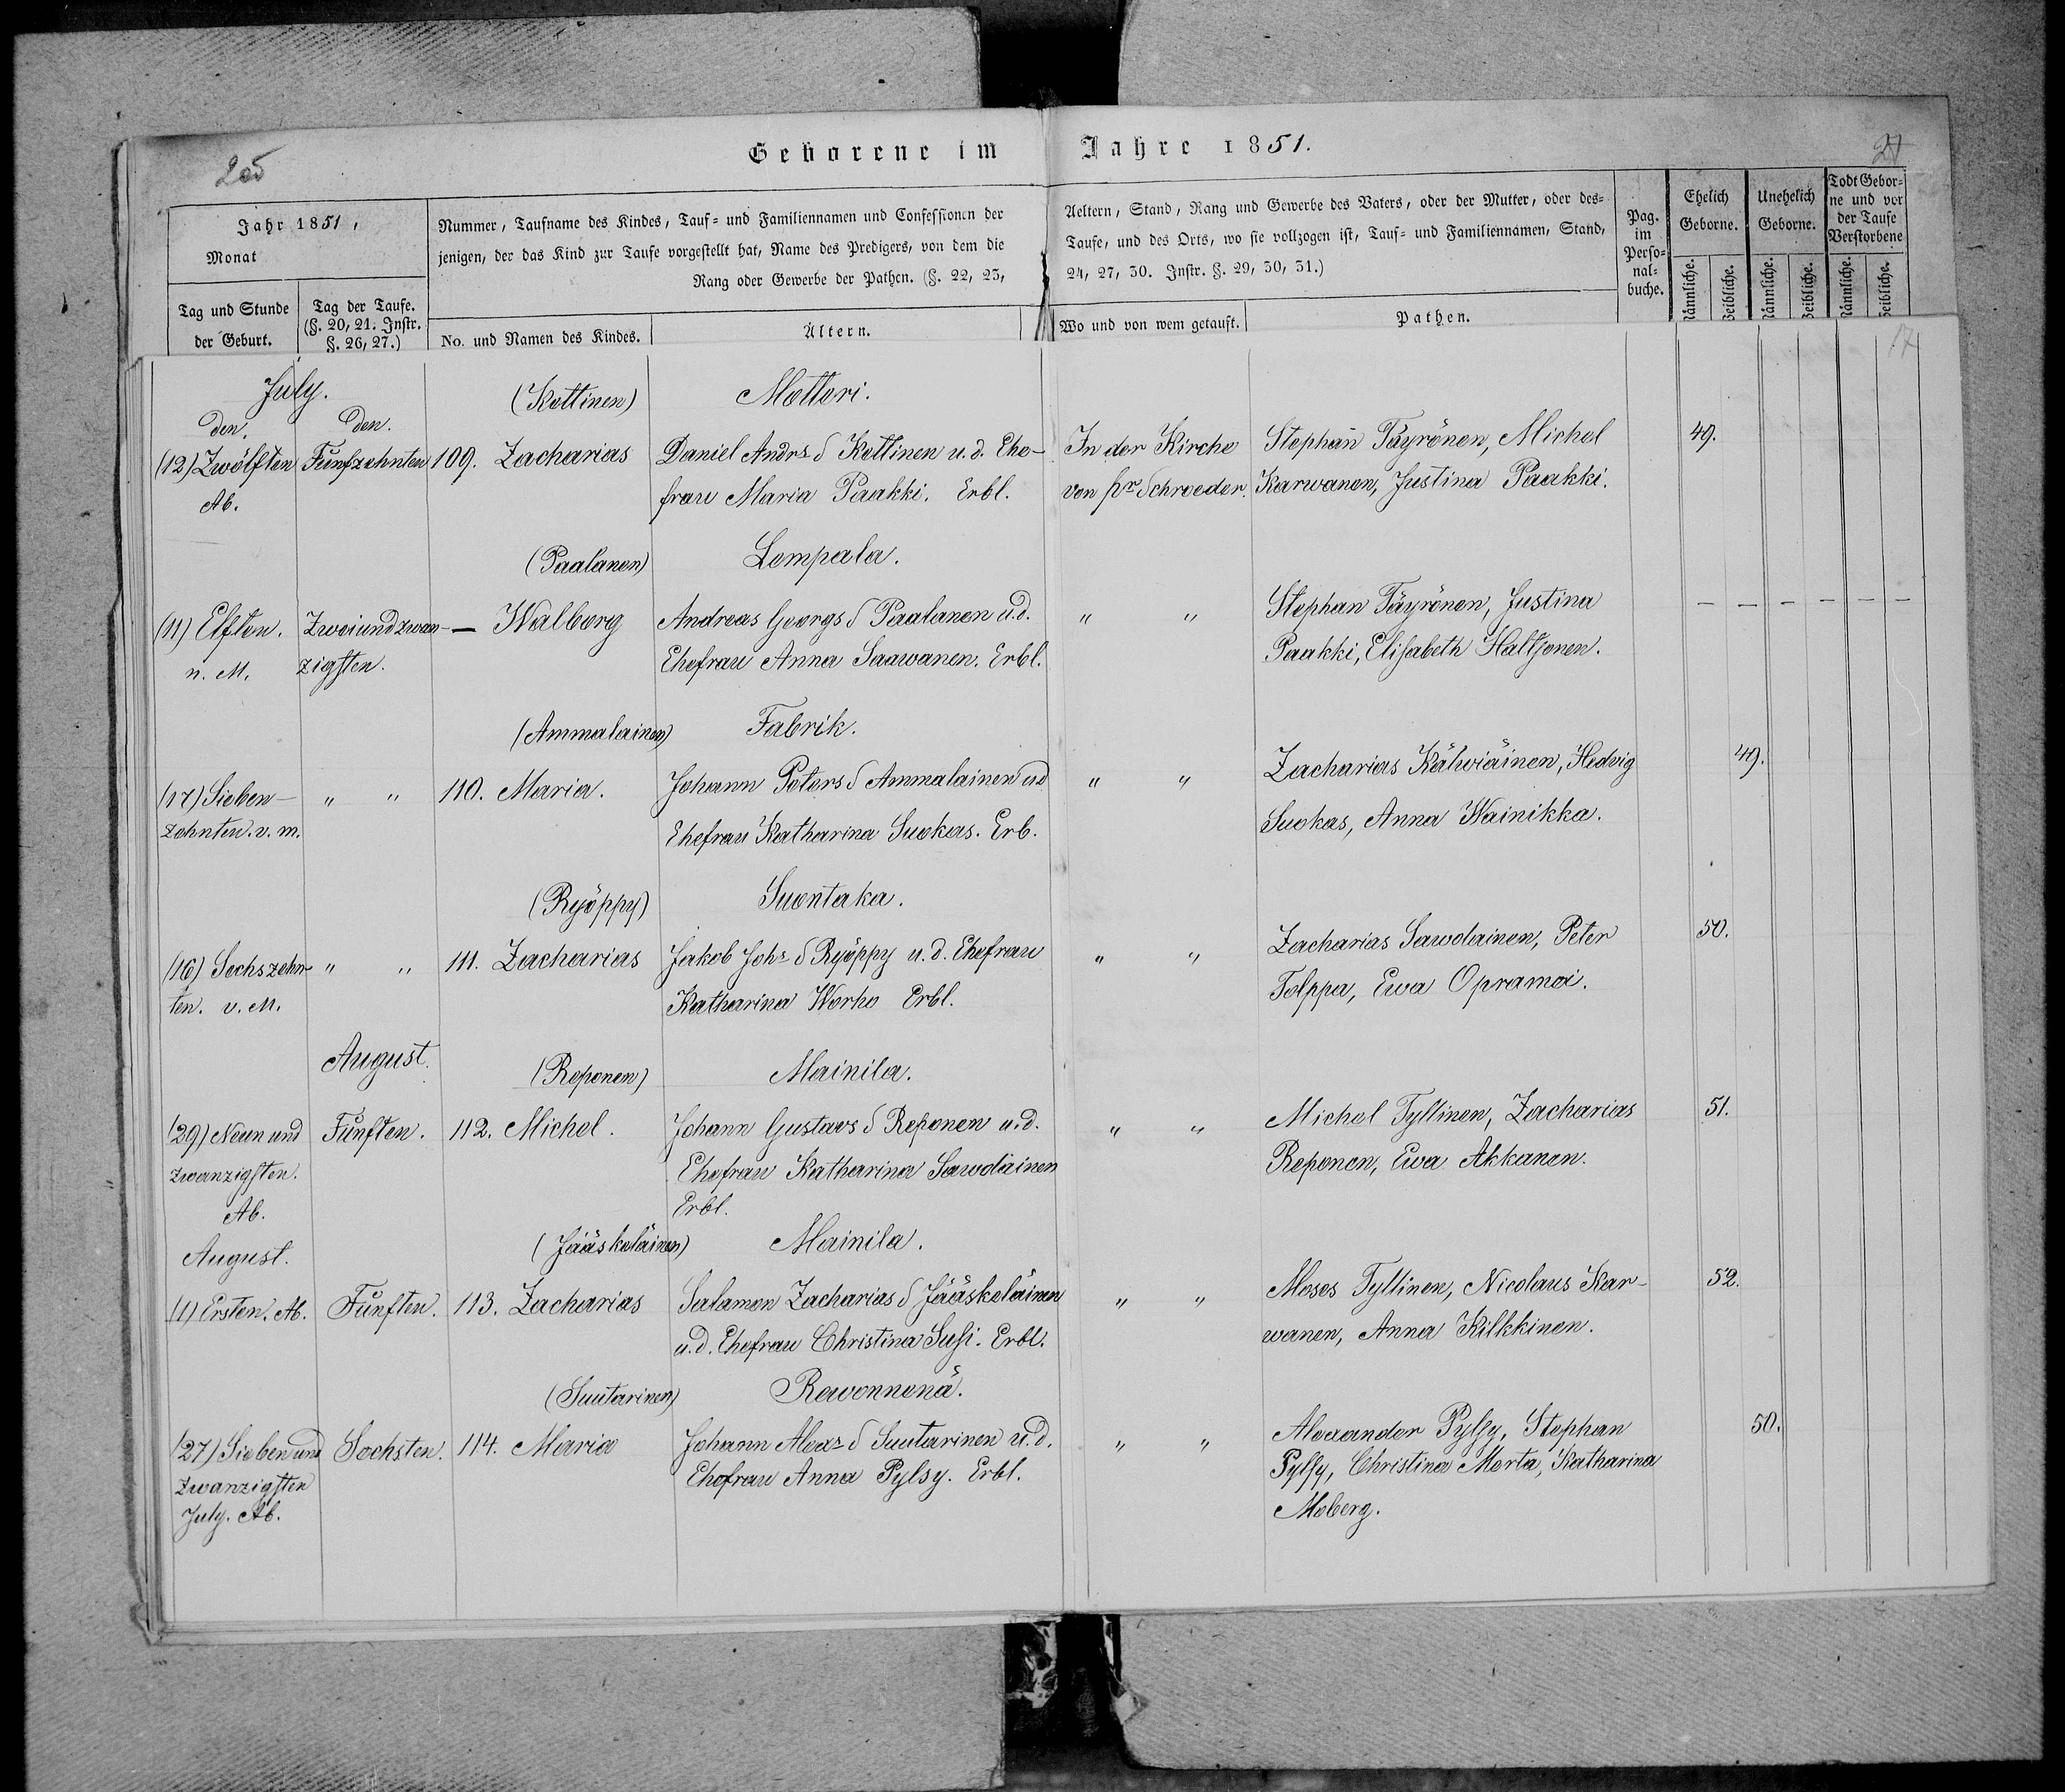 Geborene im Jahre 1851.
Jahr 1851,
Monat
Tag und Stunde der Geburt.
Tag der Taufe. (§. 20, 21. Instr. §. 26, 27.)
Nummer, Taufname des Kindes, Tauf- und Familiennamen und Confessionen der Aeltern, Stand, Rang und Gewerbe des Vaters, oder der Mutter, oder des-
jenigen, der das Kind zur Taufe vorgestellt hat, Name des Predigers, von dem die Taufe, und des Orts, wo sie vollzogen ist, Tauf- und Familiennamen, Stand,
Rang oder Gewerbe der Pathen. (§. 22, 23, 24, 27, 30. Instr. §. 29, 30, 31.)
No. und Namen des Kindes.
Ältern.
Wo und von wem getauft.
Pathen.
Pag. im Perso-nal-buche.
Ehelich Geborne.
Unehelich Geborne.
Todt Gebor-ne und vor der Taufe Verstorbene
17
July.
(Kettinen) Mettori.
den. den.
(12) Zwölften Fünfzehnten 109. Zacharias Daniel Andrs S Kettinen u. d. Ehe- In der Kirche Stephan Täyrönen, Michel 49.
Ab. frau Maria Paakki. Erbl. von pr Schroeder. Karwanen, Justina Paakki.
(Paalanen) Lempala.
(11) Elften. Zweiundzwan- — Walborg Andreas Georgs S Paalanen u. d. " " Stephan Täyrönen, Justina — — — — — —
n. M. zigsten. Ehefrau Anna Saawanen. Erbl. Paakki, Elisabeth Haltsonen.
(Ammalainen) Fabrik.
(17) Sieben- " " 110. Maria. Johann Peters S Ammalainen u d " " Zacharias Kähwiäinen, Hedvig 49.
zehnten. v. m. Ehefrau Katharina Suokas. Erb. Suokas, Anna Wainikka.
(Ryöppy) Suontaka.
(16) Sechszehn- " " 111. Zacharias Jakob Johs S Ryöppy u. d. Ehefrau " " Zacharias Sawolainen, Peter 50.
ten. v. M. Katharina Werho Erbl. Tolppa, Ewa Opramoi.
August.
(Reponen) Mainila.
(29) Neun und Fünften. 112. Michel. Johann Gustavs S Reponen u. d. " " Michel Tyllinen, Zacharias 51.
zwanzigsten. Ehefrau Katharina Sawolainen Reponen, Ewa Akkanen.
Ab. Erbl.
August. (Jääskeläinen) Mainila.
(1) Ersten. Ab. Fünften. 113. Zacharias Salamon Zacharias S Jääskeläinen " " Moses Tyllinen, Nicolaus Kar- 52.
u. d. Ehefrau Christina Susi. Erbl. wanen, Anna Kilkkinen.
(Suutarinen) Rawonnenä.
(27) Sieben und Sechsten. 114. Maria Johann Alexr S Suutarinen u. d. " " Alexander Pylsy, Stephan 50.
zwanzigsten Ehefrau Anna Pylsy. Erbl. Pylsy, Christina Merta, Katharina
July. Ab. Moberg.